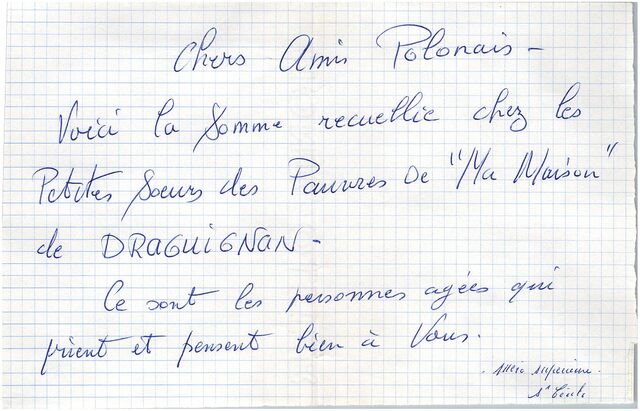 Chers Amis Polonais -
Voici la Somme recueillie chez les
Petites Soeurs des Pauvres De "Ma Maison"
de DRAGUIGNAN -
Ce sont les personnes agées qui
prient et pensent bien à Vous.
Mère Supérieure.
Sr Cécile